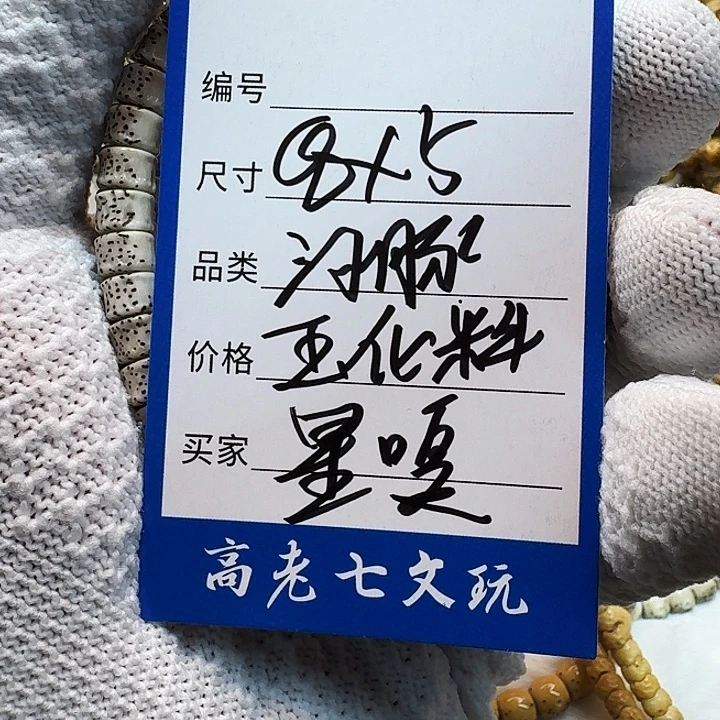 编号
尺寸 8×5
品类 河豚
价格 玉化料
买家 星嘎
高老七文玩